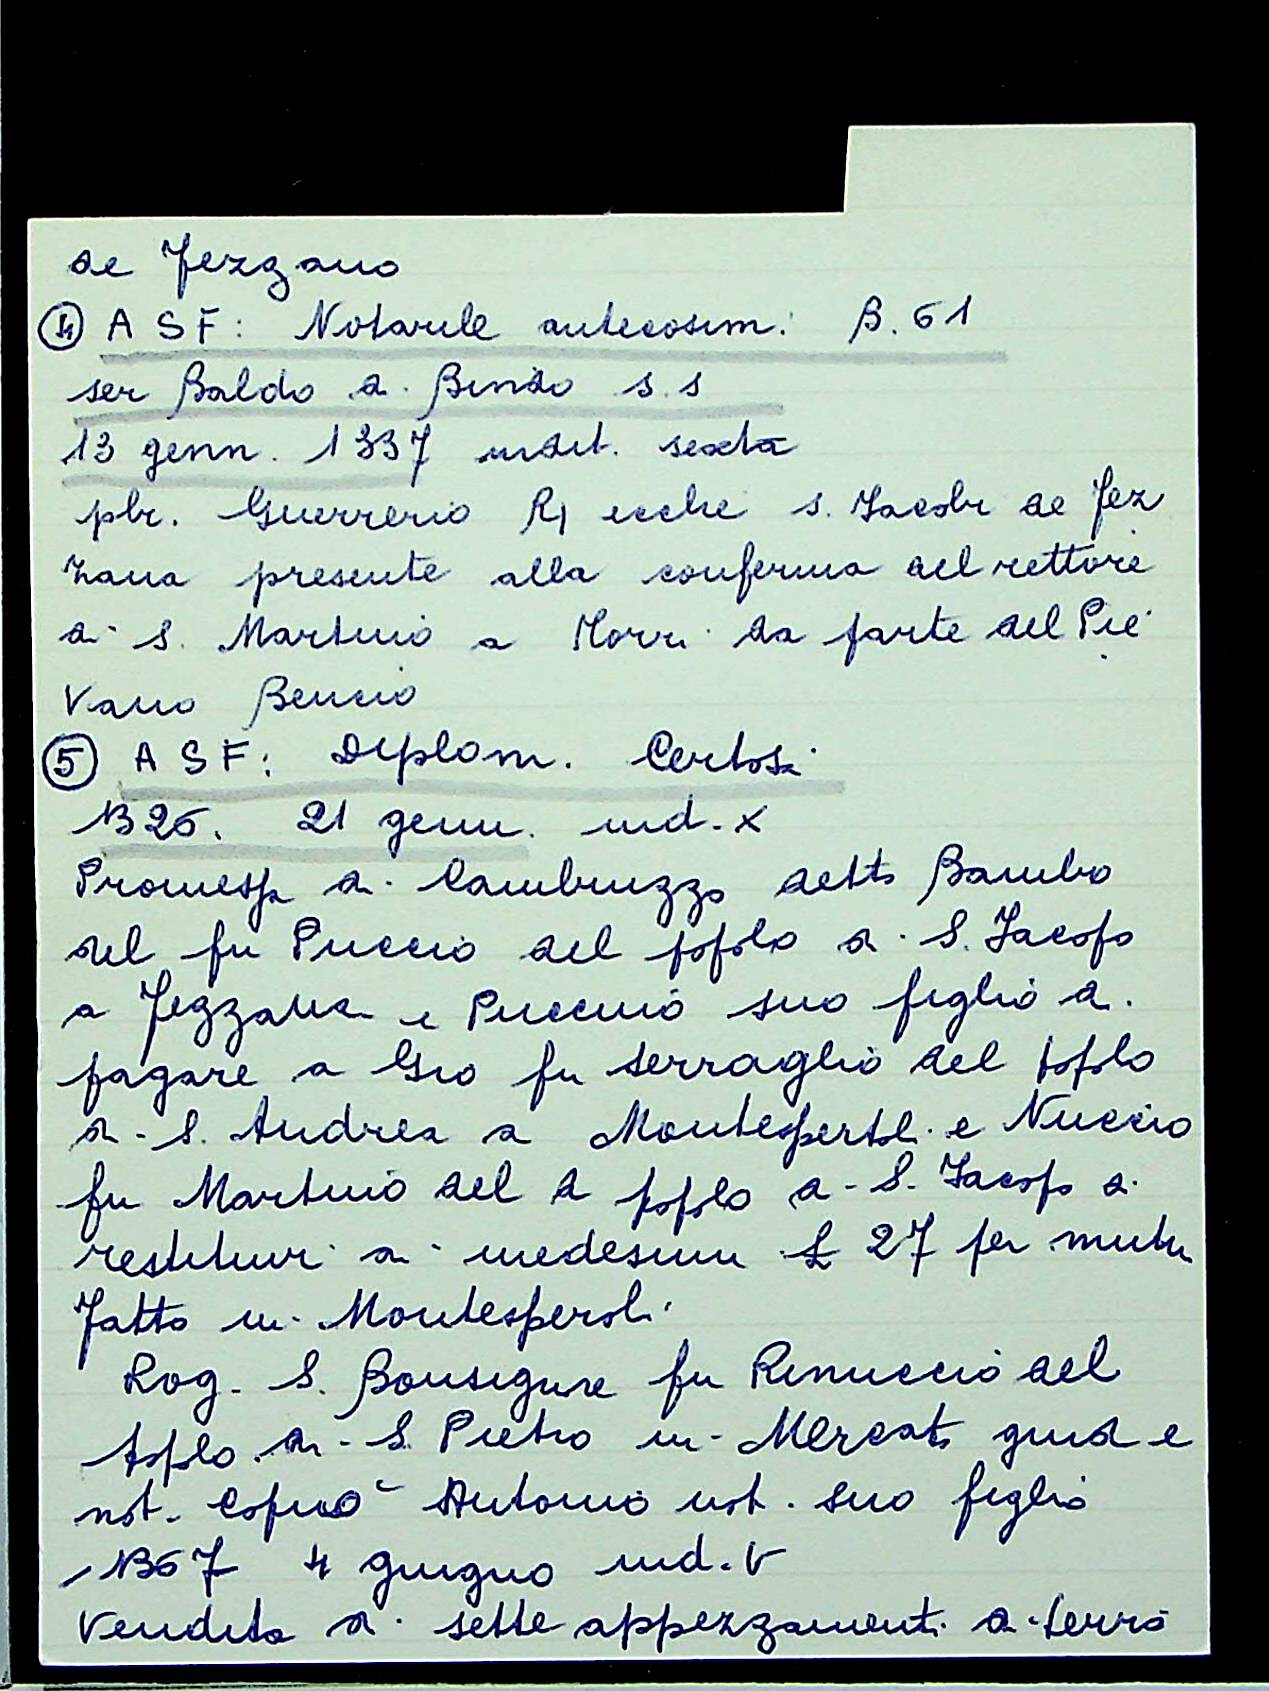 de Fezzano
④ A S F: Notarile antecosim. B. 61
ser Baldo di Bindo s. s
13 genn. 1337 indit. sexta
pbr. Guerrerio R ecche s. Jacobi de Fez
zana presente alla conferma del rettore
di S. Martino a Torri da parte del Pie
vano Bencio
⑤ A S F: Diplom. Certosa
1326. 21 genn. ind. X
Promessa di Cambruzzo detto Bambo
del fu Puccio del popolo di S. Jacopo
a Fezzana e Puccino suo figlio di
pagare a Gio fu Serraglio del popolo
di S. Andrea a Montespertoli e Nuccio
fu Martino del d popolo di S. Jacopo di
restituire ai medesimi £ 27 per mutuo
fatto in Montesperoli
Rog. S. Bonsignore fu Rinuccio del
popolo di S. Pietro in Mercato giud e
not. Copiò Antonio not. suo figlio
1367 4 giugno ind. V
Vendita di sette appezzamenti di terra